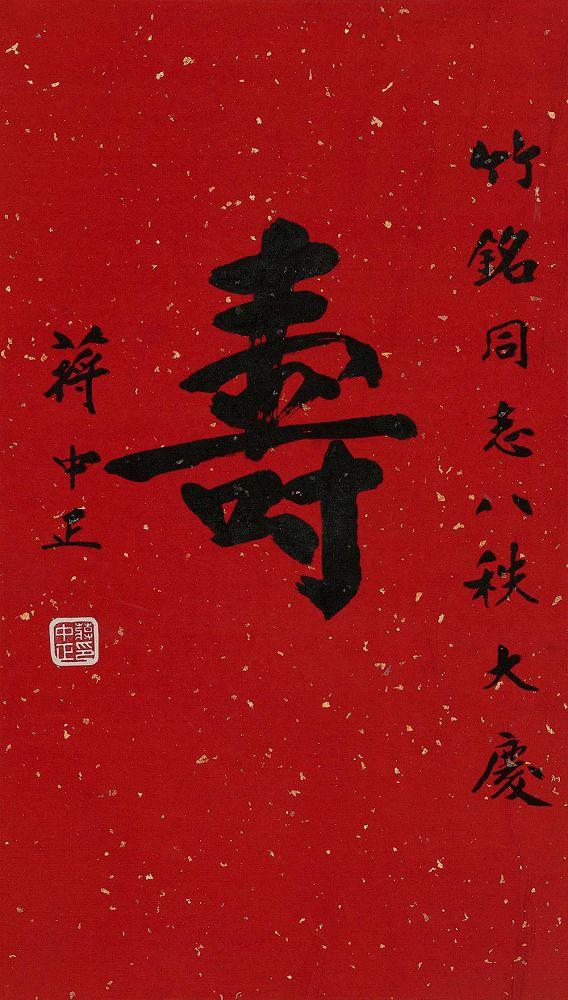 竹銘同志八秩大慶
壽
蔣中正
蔣中正印